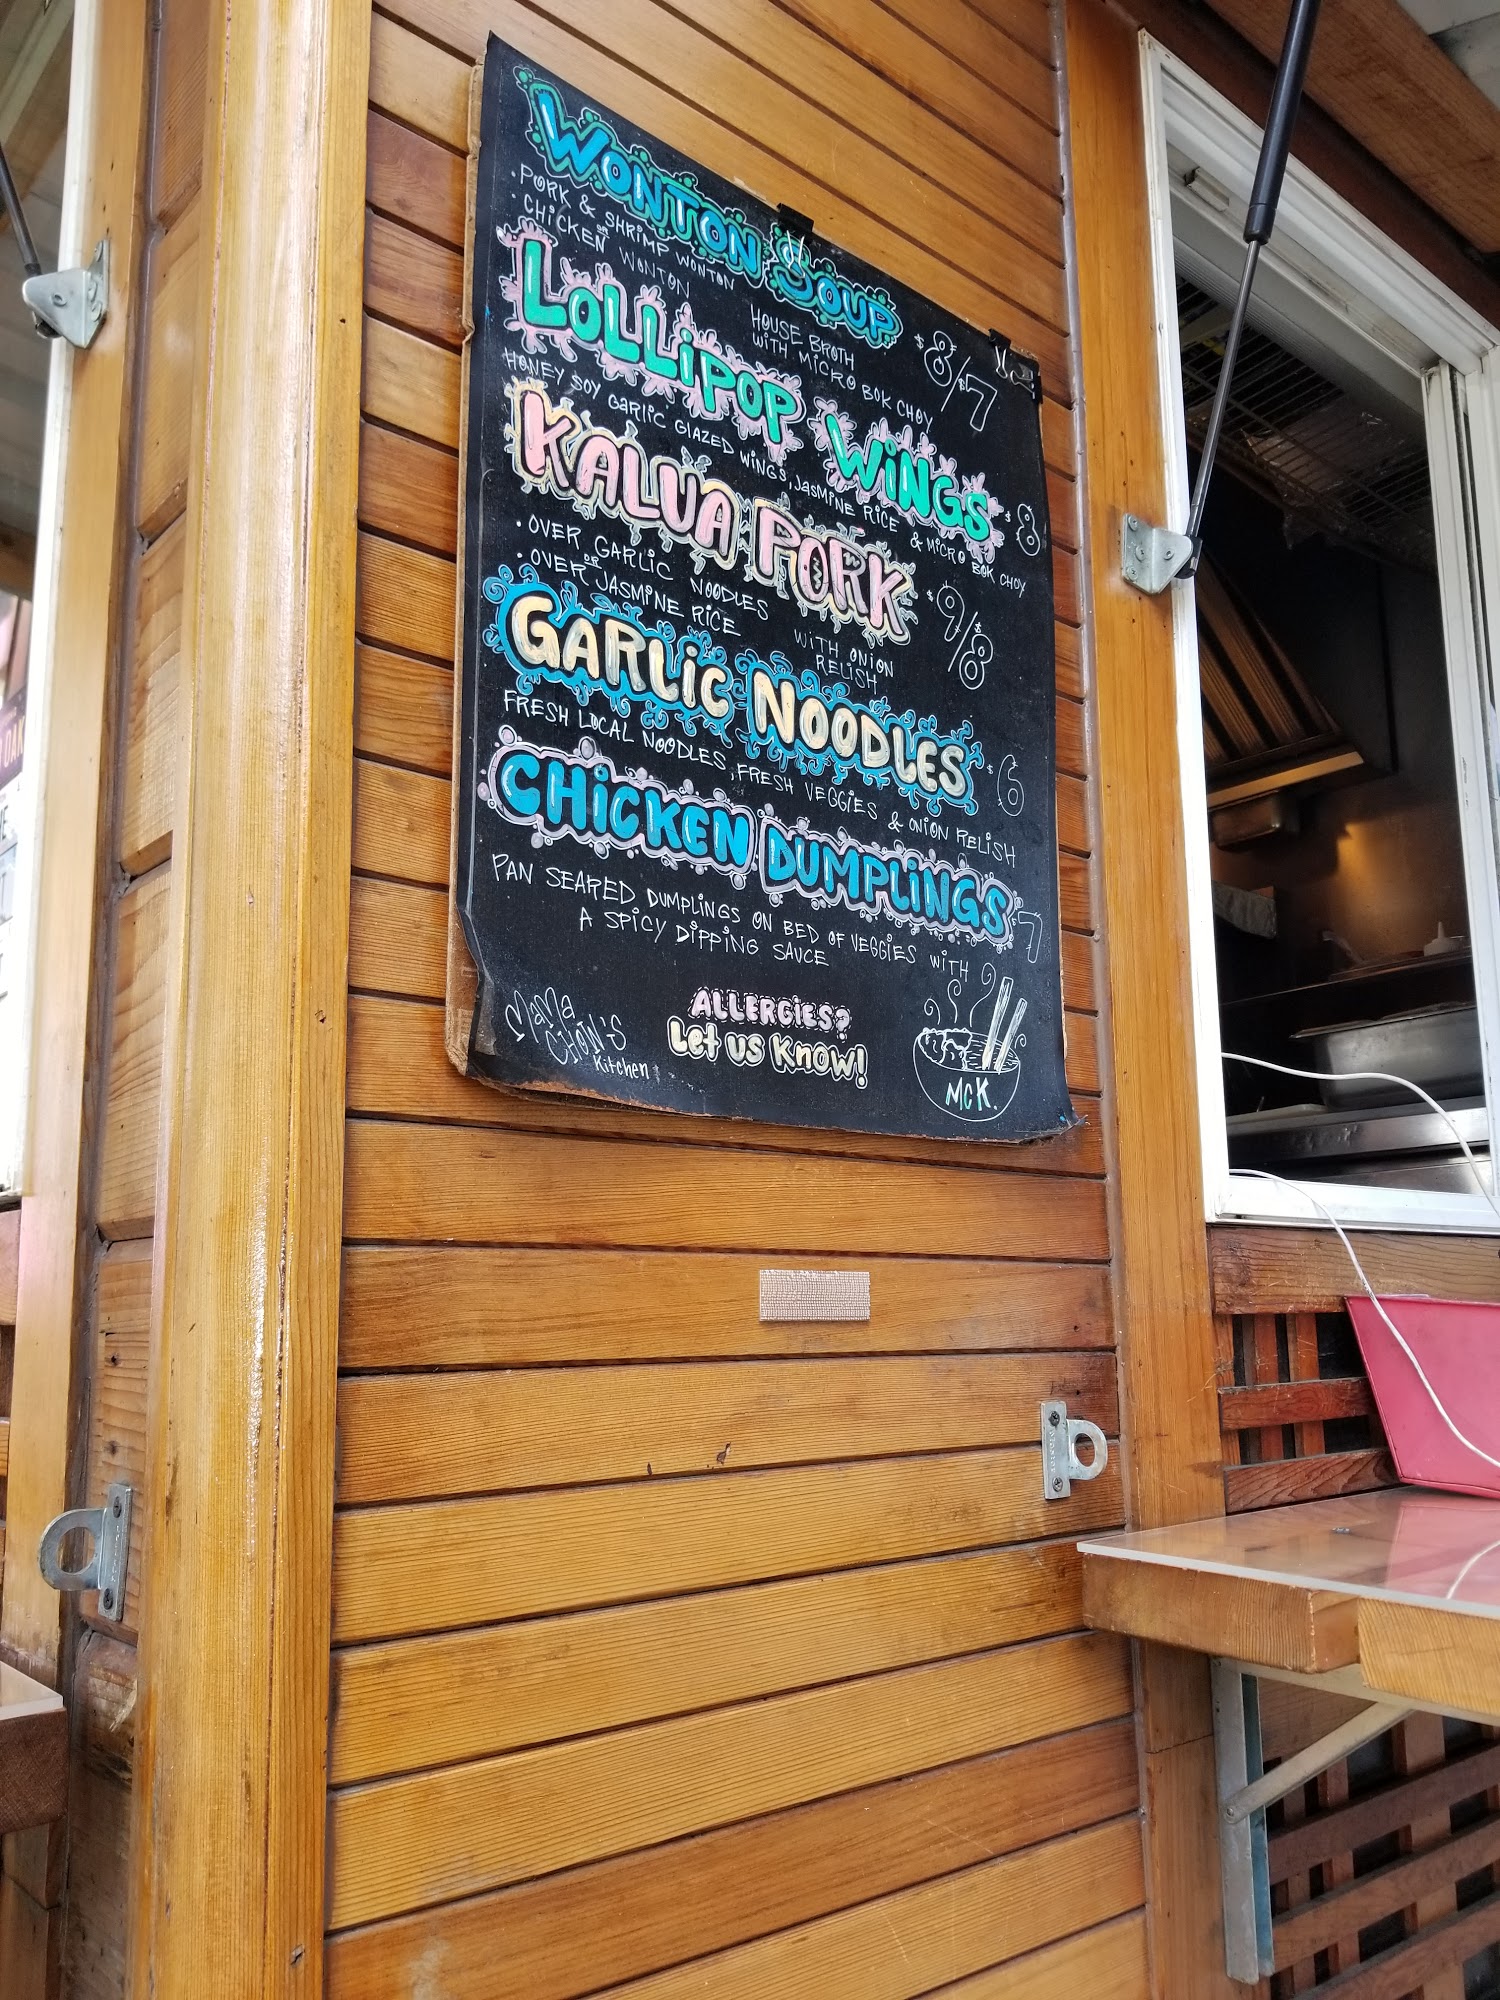 WONTON SOUP
• PORK & SHRIMP WONTON
or
• CHICKEN WONTON
HOUSE BROTH
WITH MICRO BOK CHOY
$8/$7
LOLLIPOP WINGS
HONEY SOY GARLIC GLAZED WINGS, JASMINE RICE & MICRO BOK CHOY
$8
KALUA PORK
• OVER GARLIC NOODLES
OR
• OVER JASMINE RICE
WITH ONION
RELISH
$9/$8
GARLIC NOODLES
FRESH LOCAL NOODLES, FRESH VEGGIES & ONION RELISH
$6
CHICKEN DUMPLINGS
$7
PAN SEARED DUMPLINGS ON BED OF VEGGIES WITH
A SPICY DIPPING SAUCE
MaMa
CHOW'S
Kitchen
ALLERGIES?
Let us Know!
McK.